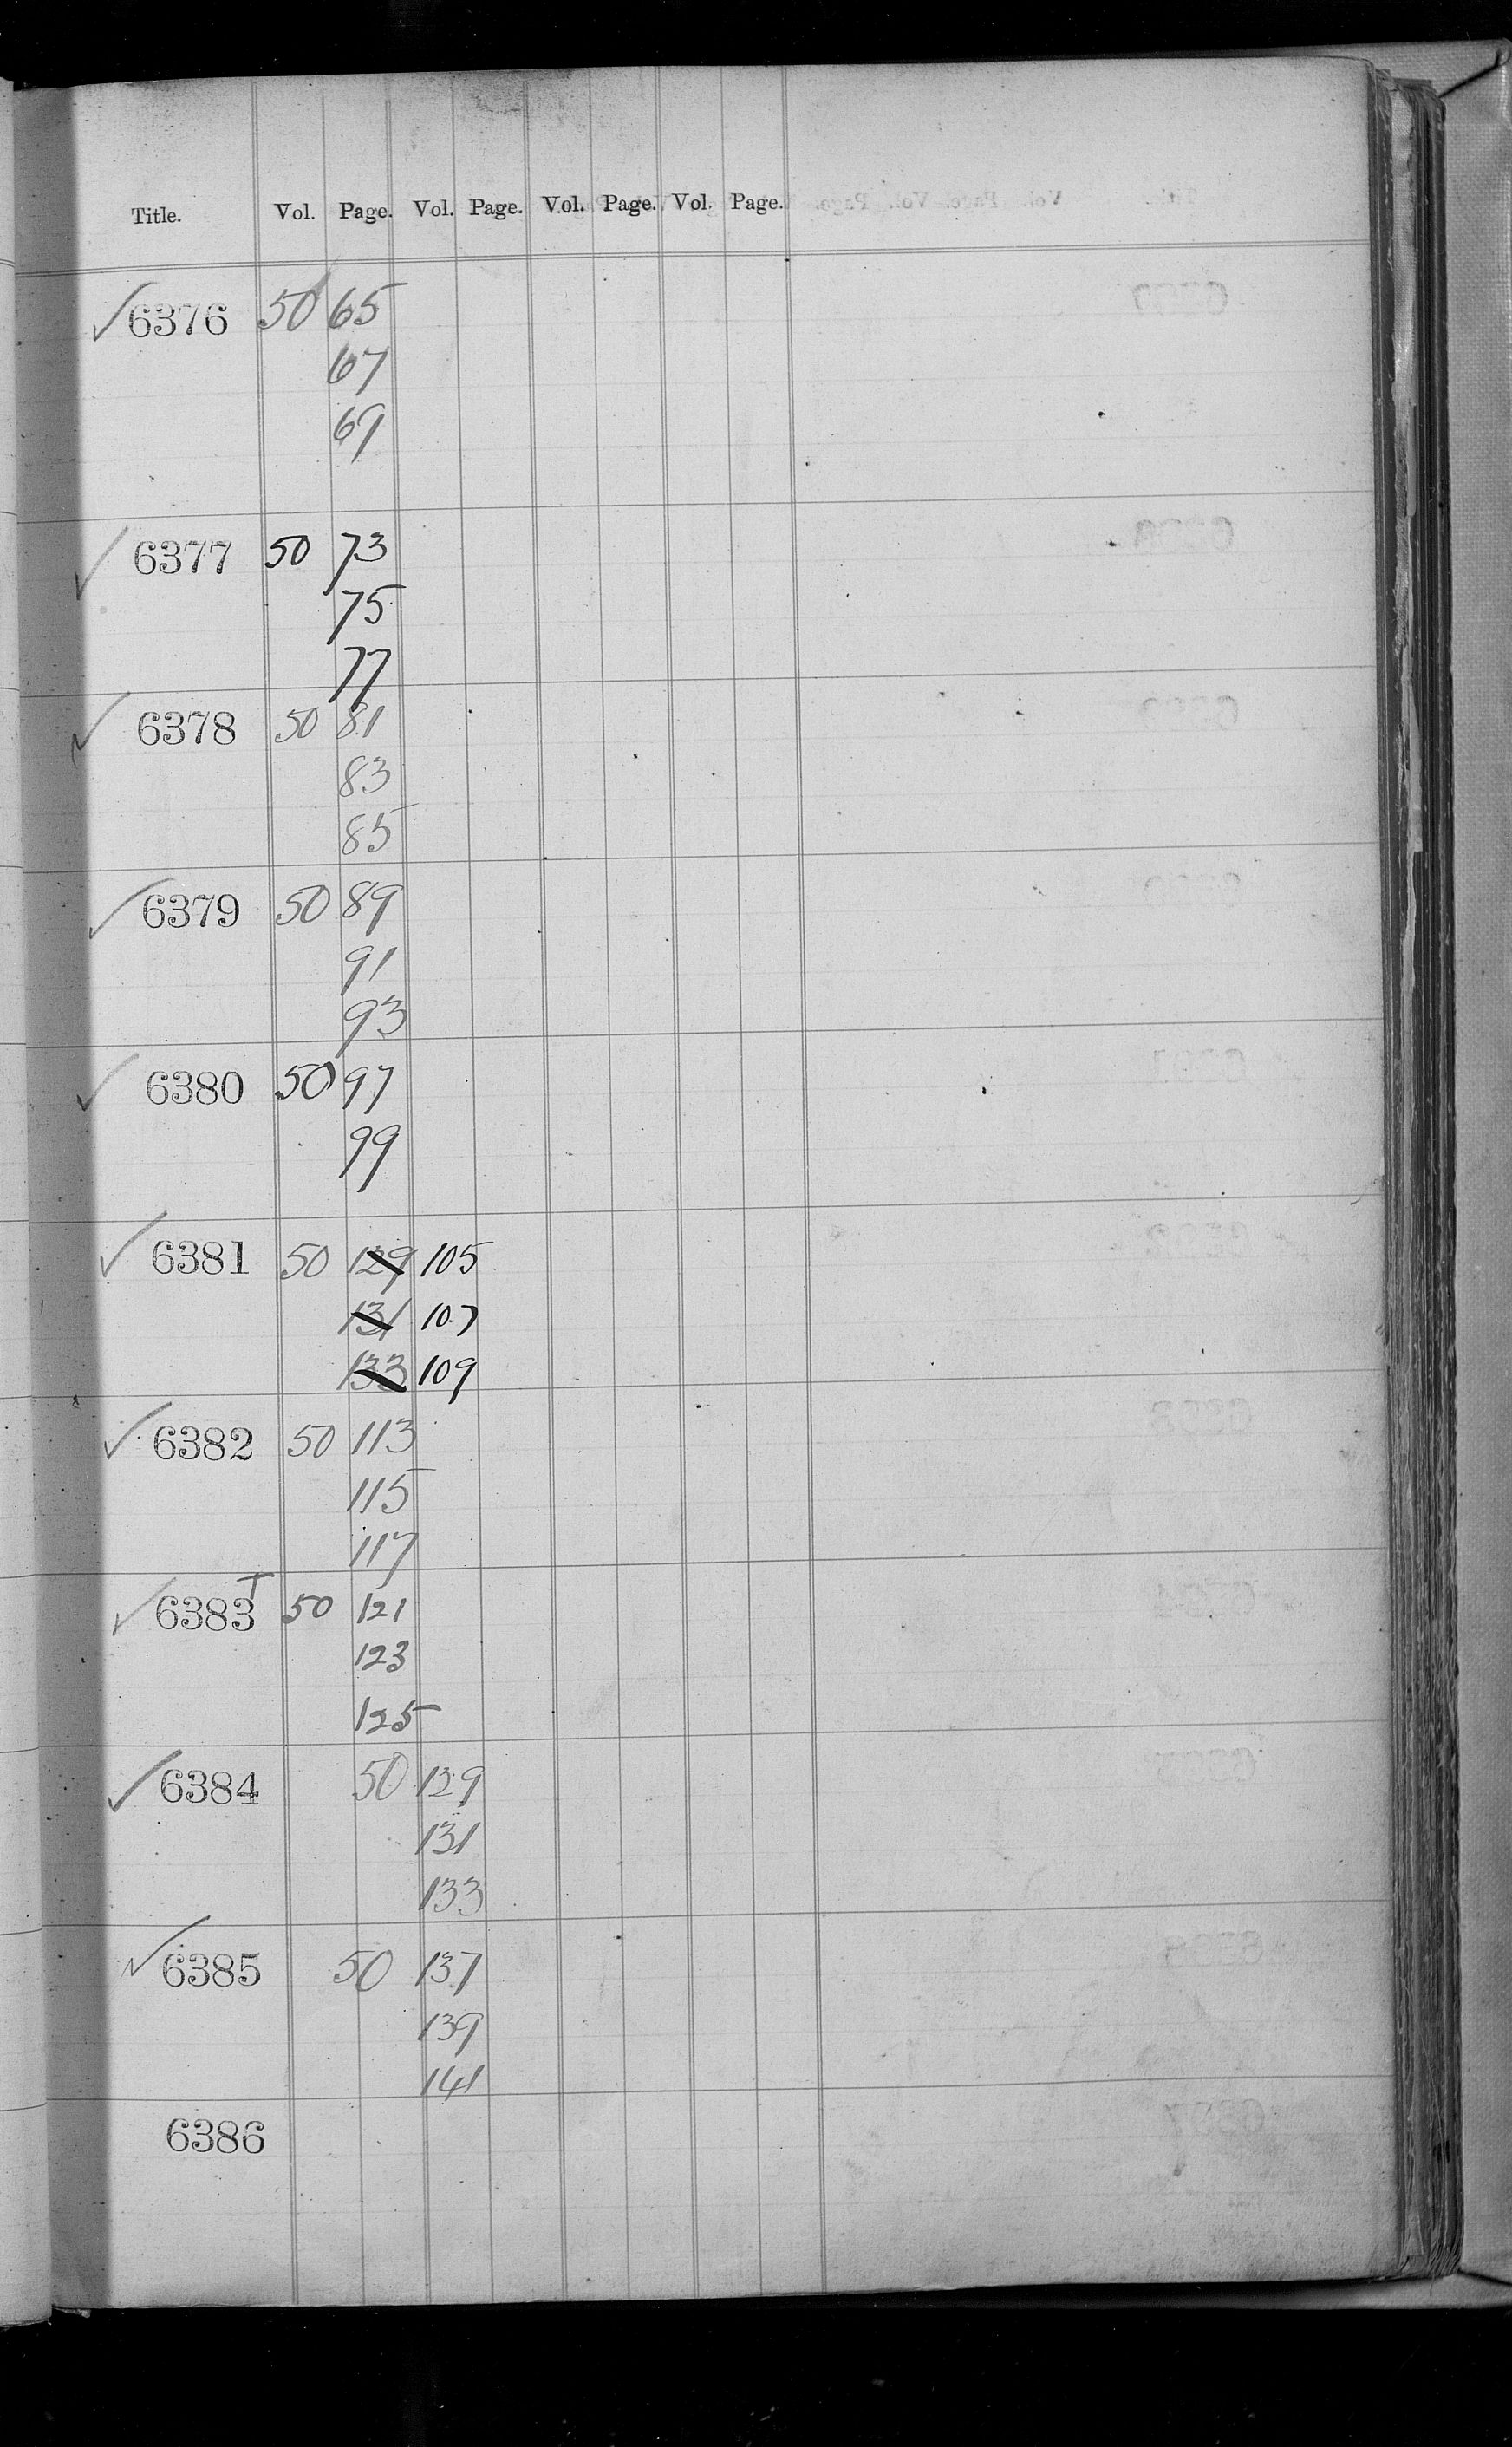 Title. Vol. Page. Vol. Page. Vol. Page. Vol. Page.
✓6376 50 65
67
69
✓ 6377 50 73
75
77
✓ 6378 50 81
83
85
✓6379 50 89
91
93
✓ 6380 50 97
99
✓ 6381 50 129 105
131 107
133 109
✓6382 50 113
115
117
✓ 6383 T 50 121
123
125
✓6384 50 129
131
133
✓6385 50 137
139
141
6386